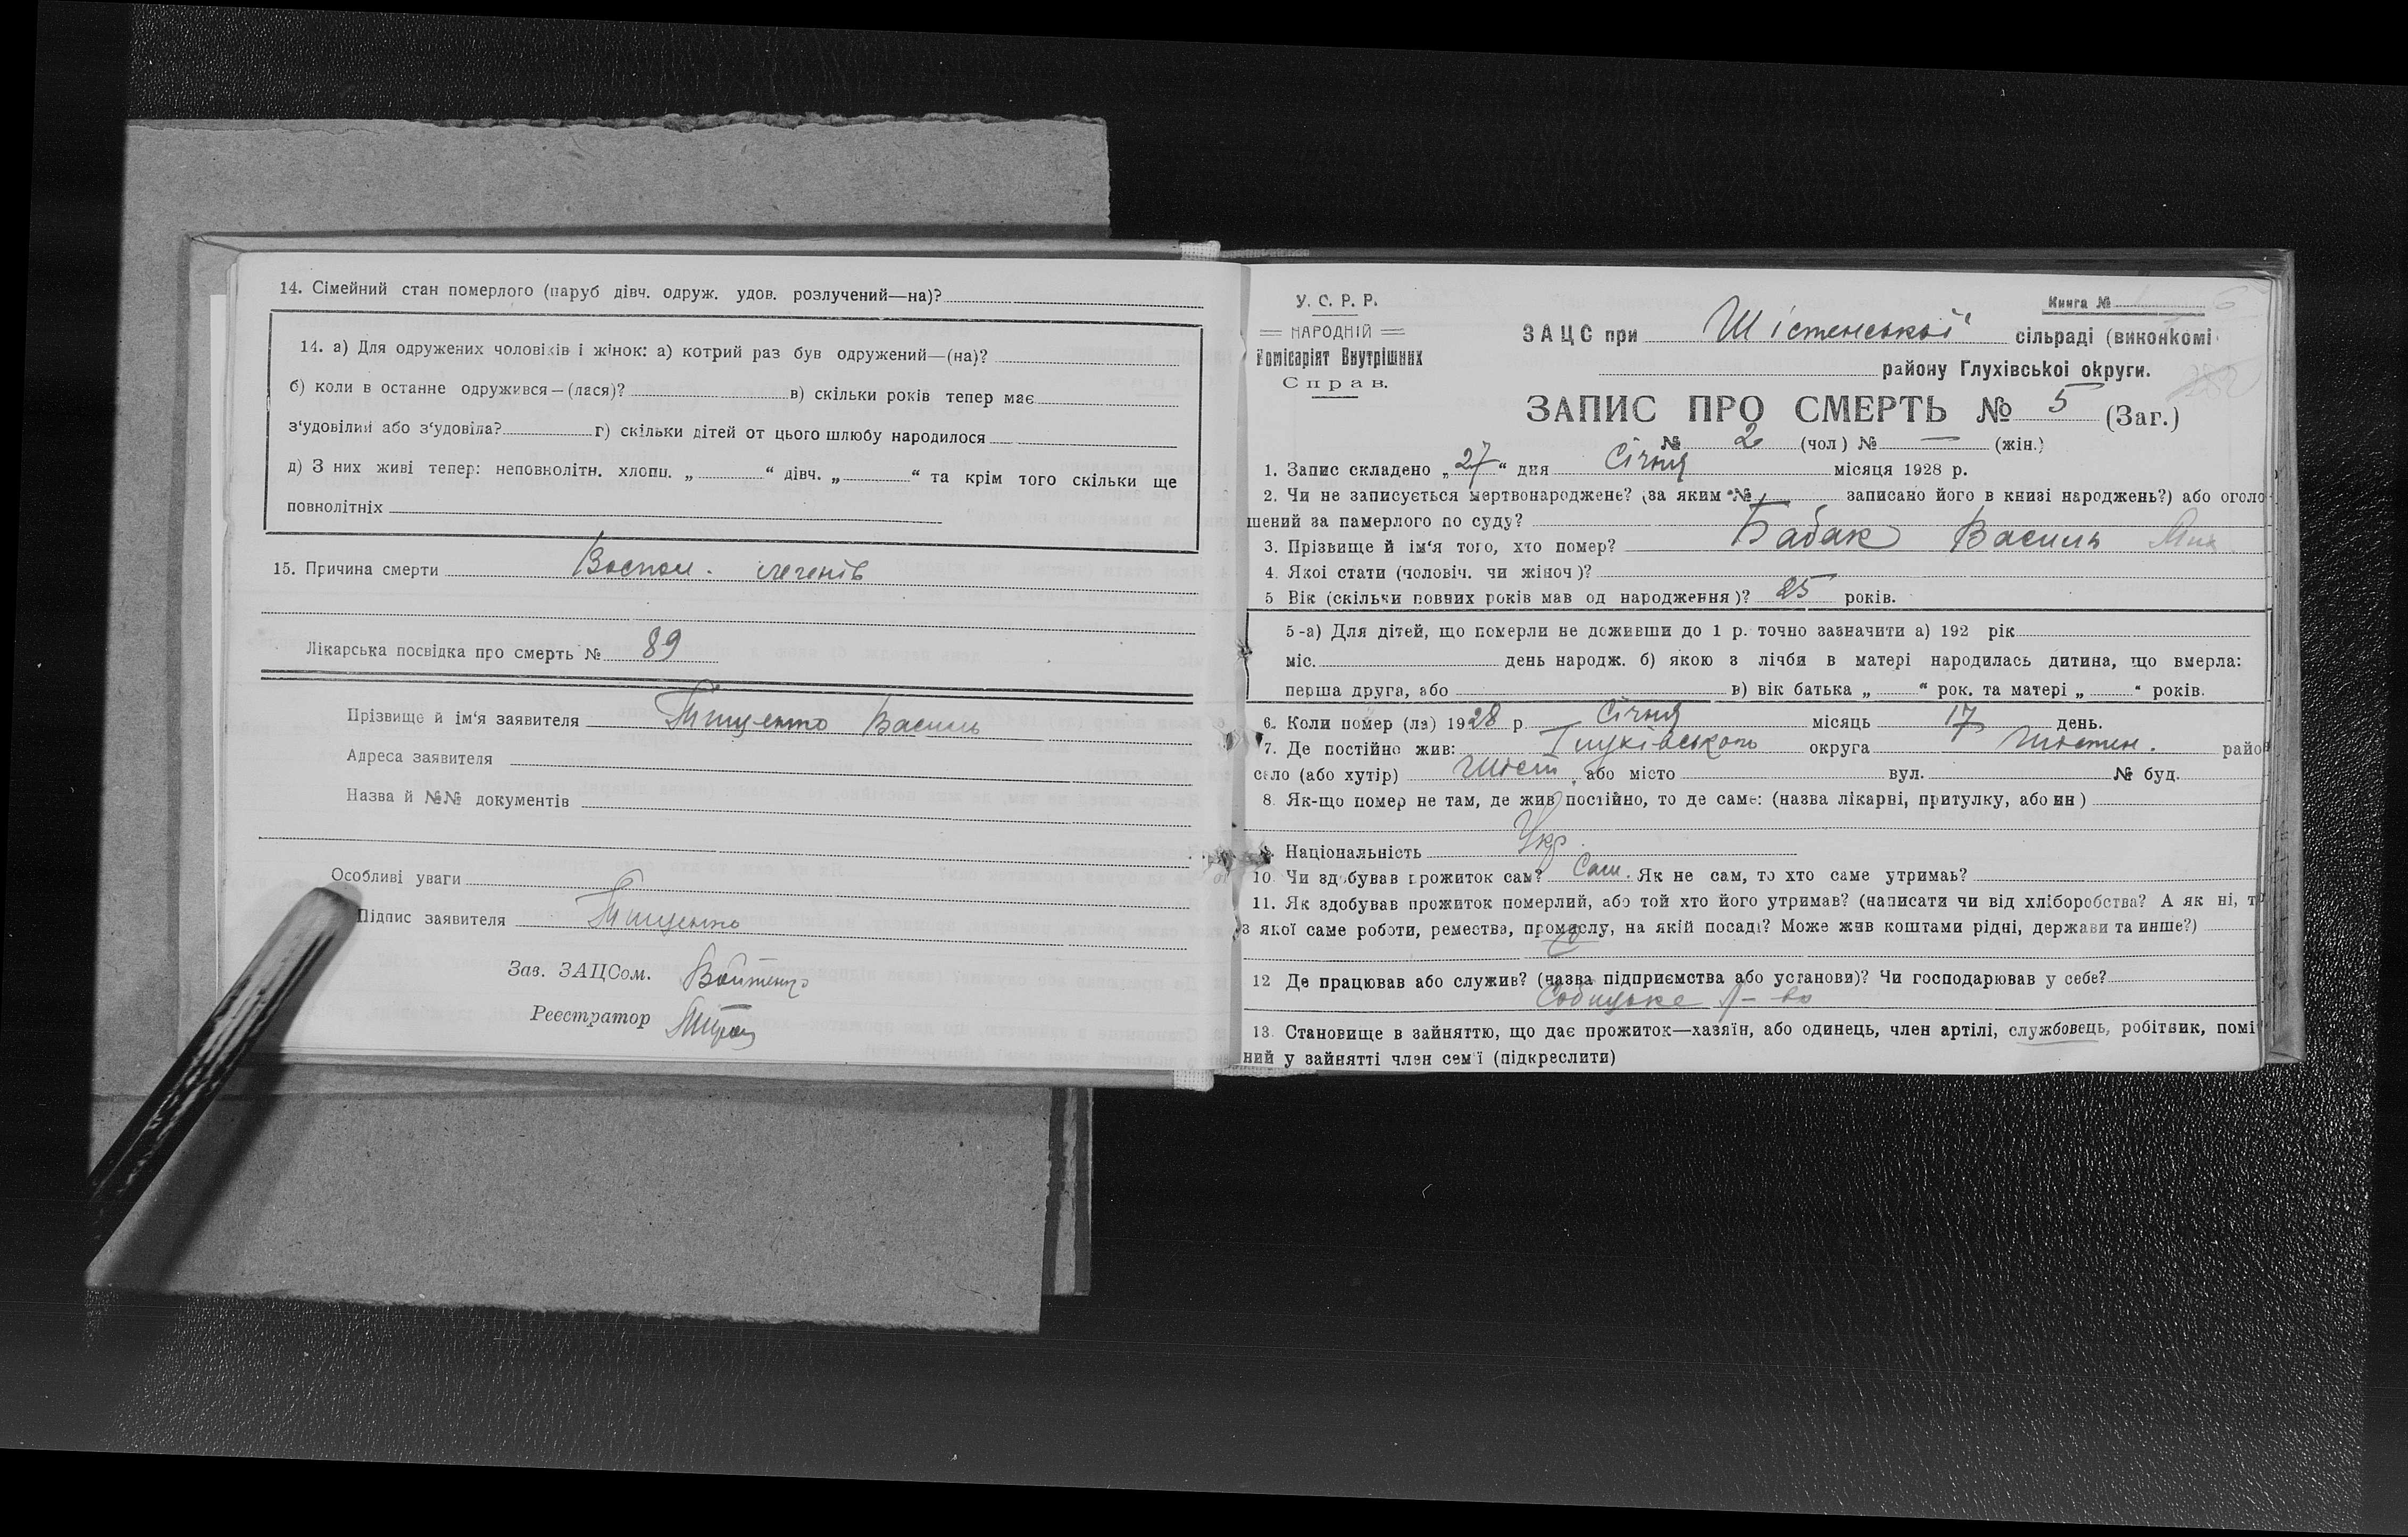 14. Сімейний стан померлого (паруб дівч. одруж. удов. розлучений—на)?
14. а) Для одружених чоловіків і жінок: а) котрий раз був одружений—(на)?
б) коли в останне одружився—(лася)? в) скільки років тепер має
з‘удовілий або з‘удовіла? г) скільки дітей от цього шлюбу народилося
д) З них живі тепер: неповнолітн. хлопц. „ “ дівч. „ “ та крім того скільки ще
повнолітніх
15. Причина смерти Воспол. легенів
Лікарська посвідка про смерть № 89
Прізвище й ім‘я заявителя Тищенко Василь
Адреса заявителя
Назва й №№ документів
Особливі уваги
Підпис заявителя Тищенко
Зав. ЗАЦСом. Войтенко
Реєстратор
У. С. Р. Р.
НАРОДНІЙ
Комісаріят Внутрішних
Справ.
Книга №
ЗАЦС при Шістенської сільраді (виконкомі
району Глухівської округи.
ЗАПИС ПРО СМЕРТЬ № 5 (Заг.)
№ 2 (чол) № — (жін.)
1. Запис складено „27“ дня Січня місяця 1928 р.
2. Чи не записується мертвонароджене? (за яким № записано його в книзі народжень?) або оголо
шений за памерлого по суду?
3. Прізвище й ім‘я того, хто помер? Бабак Василь
4. Якої стати (чоловіч. чи жіноч)?
5 Вік (скільки повних років мав од народження)? 25 років.
5-а) Для дітей, що померли не доживши до 1 р. точно зазначити а) 192 рік
міс. день народж. б) якою з лічби в матері народилась дитина, що вмерла:
перша друга, або в) вік батька „ “ рок. та матері „ “ років.
6. Коли помер (ла) 1928 р. Січня місяць 17 день.
7. Де постійно жив: Глухівського округа Шостен. район
село (або хутір) Шост , або місто вул. № буд.
8. Як-що помер не там, де жив постійно, то де саме: (назва лікарві, притулку, або ин)
9. Національність Укр.
10. Чи здобував прожиток сам? Сам. Як не сам, то хто саме утримав?
11. Як здобував прожиток померлий, або той хто його утримав? (написати чи від хліборобства? А як ні, то
з якої саме роботи, ремества, промислу, на якій посаді? Може жив коштами рідні, держави та инше?)
12 Де працював або служив? (назва підприємства або установи)? Чи господарював у себе?
Собицьке Л-во
13. Становище в зайняттю, що дає прожиток—хазяїн, або одинець, член артілі, службовець, робітник, помі
ний у зайнятті член сем‘ї (підкреслити)